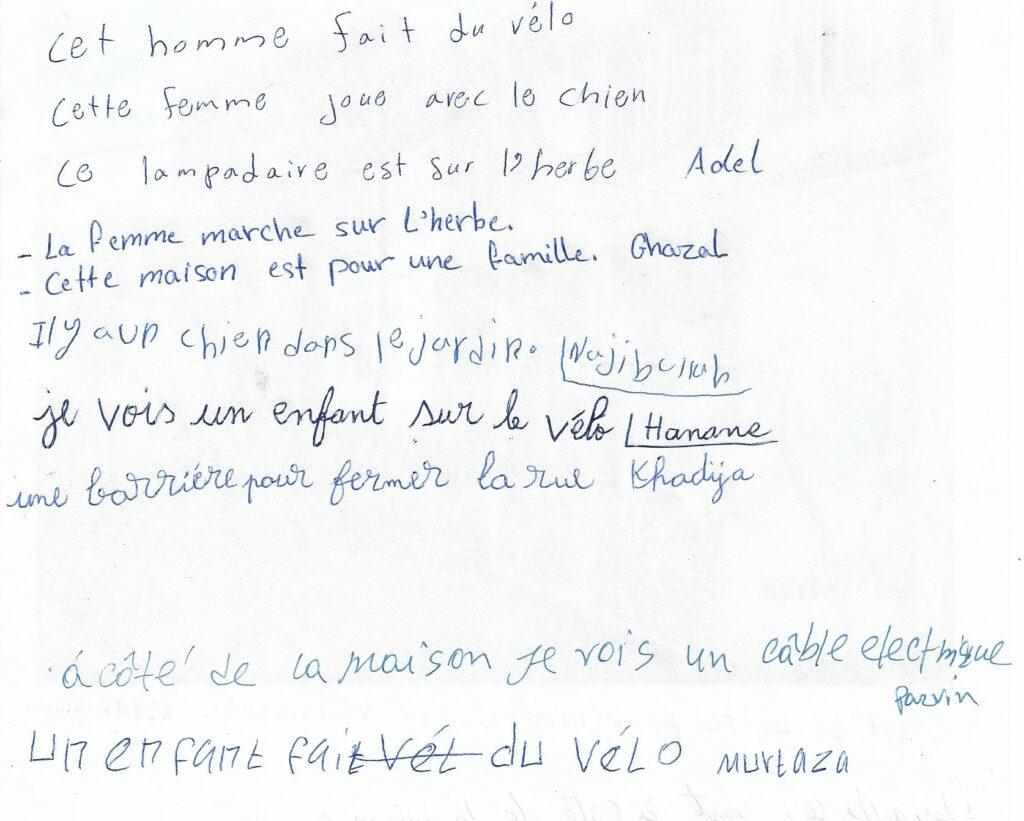 Cet homme fait du vélo
Cette femme joue avec le chien
Ce lampadaire est sur l'herbe Adel
- La femme marche sur L'herbe.
- Cette maison est pour une famille. Ghazal
Il y a un chien dans le jardin.
je vois un enfant sur le vélo Hanane
une barriére pour fermer la rue Khadija
á côté de la maison je vois un câble electrique
parvin
un enfant fait du vélo murtaza